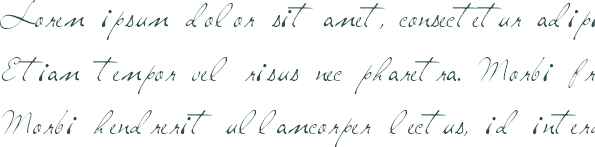 Lorem ipsum dolor sit amet, consectetur adipi
Etiam tempor vel risus nec pharetra. Morbi fr
Morbi hendrerit ullamcorper lectus, id intera